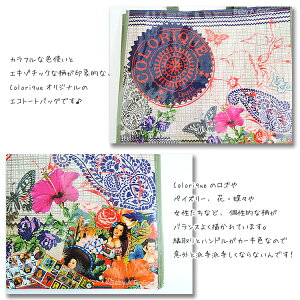 カラフルな色使いと
エキゾチックな柄が印象的な、
Coloriqueオリジナルの
エコトートバッグです♪
COLORIQUE
Coloriqueのロゴや
ペイズリー、花・蝶々や
女性たちなど、個性的な柄が
バランスよく描かれています。
縁取りとハンドルがカーキ色なので
意外と派手派手しくならないんです!